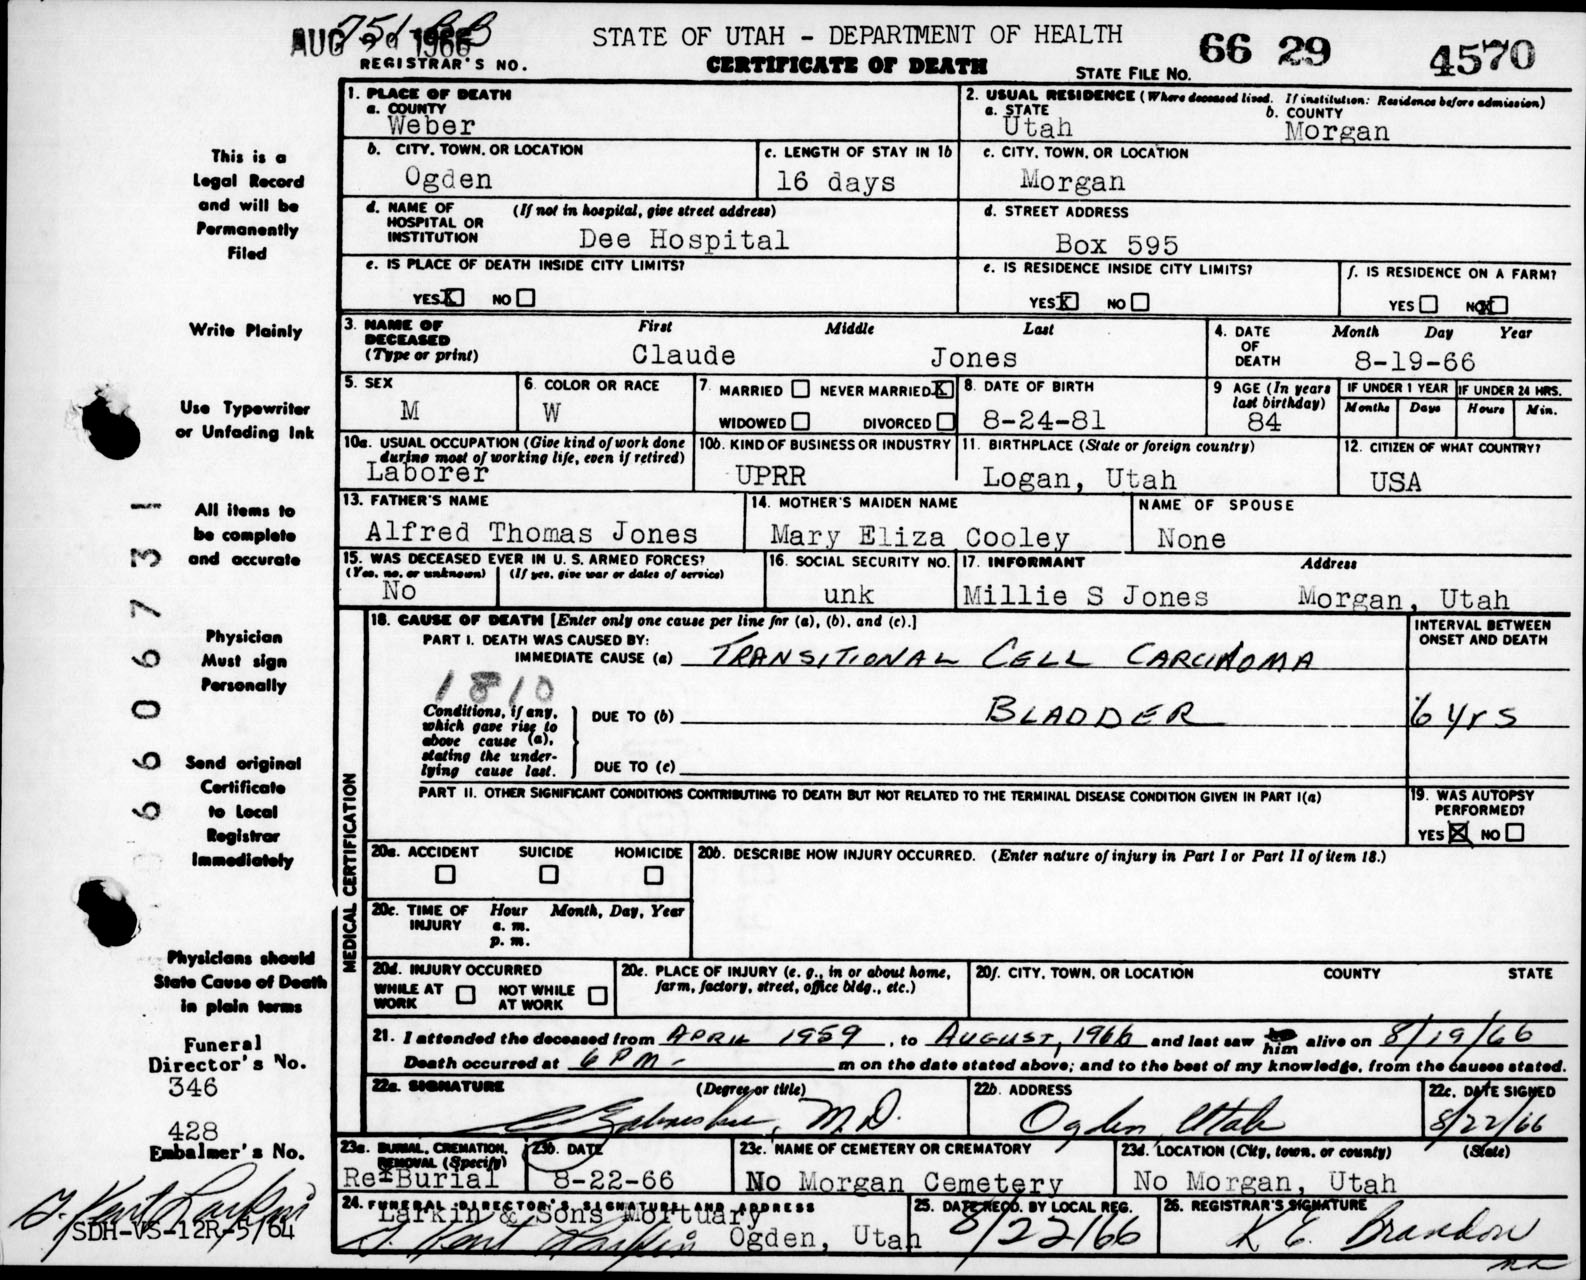 751 BB
AUG 29 1966
REGISTRAR'S NO.
STATE OF UTAH - DEPARTMENT OF HEALTH
CERTIFICATE OF DEATH
STATE FILE NO. 66 29 4570
This is a
Legal Record
and will be
Permanently
Filed
Write Plainly
Use Typewriter
or Unfading Ink
All items to
be complete
and accurate
Physician
Must sign
Personally
Send original
Certificate
to Local
Registrar
Immediately
Physicians should
State Cause of Death
in plain terms
Funeral
Director's No.
346
428
Embalmer's No.
T. Kent Larkin
SDH-VS-12R-5/64
66067 31
1. PLACE OF DEATH
a. COUNTY
Weber
2. USUAL RESIDENCE (Where deceased lived. If institution: Residence before admission)
a. STATE b. COUNTY
Utah Morgan
b. CITY, TOWN, OR LOCATION
Ogden
c. LENGTH OF STAY IN 1b
16 days
c. CITY, TOWN, OR LOCATION
Morgan
d. NAME OF (If not in hospital, give street address)
HOSPITAL OR
INSTITUTION Dee Hospital
d. STREET ADDRESS
Box 595
e. IS PLACE OF DEATH INSIDE CITY LIMITS?
YES X NO
e. IS RESIDENCE INSIDE CITY LIMITS?
YES X NO
f. IS RESIDENCE ON A FARM?
YES NO X
3. NAME OF First Middle Last
DECEASED
(Type or print) Claude Jones
4. DATE Month Day Year
OF
DEATH 8-19-66
5. SEX
M
6. COLOR OR RACE
W
7 MARRIED NEVER MARRIED X
WIDOWED DIVORCED
8. DATE OF BIRTH
8-24-81
9 AGE (In years
last birthday)
84
IF UNDER 1 YEAR IF UNDER 24 HRS.
Months Days Hours Min.
10a. USUAL OCCUPATION (Give kind of work done
during most of working life, even if retired)
Laborer
10b. KIND OF BUSINESS OR INDUSTRY
UPRR
11. BIRTHPLACE (State or foreign country)
Logan, Utah
12. CITIZEN OF WHAT COUNTRY?
USA
13. FATHER'S NAME
Alfred Thomas Jones
14. MOTHER'S MAIDEN NAME
Mary Eliza Cooley
NAME OF SPOUSE
None
15. WAS DECEASED EVER IN U. S. ARMED FORCES?
(Yes, no, or unknown) (If yes, give war or dates of service)
No
16. SOCIAL SECURITY NO.
unk
17. INFORMANT Address
Millie S Jones Morgan, Utah
MEDICAL CERTIFICATION
18. CAUSE OF DEATH [Enter only one cause per line for (a), (b), and (c).]
PART I. DEATH WAS CAUSED BY:
IMMEDIATE CAUSE (a) TRANSITIONAL CELL CARCINOMA
INTERVAL BETWEEN
ONSET AND DEATH
1810
Conditions, if any,
which gave rise to
above cause (a),
stating the under-
lying cause last.
DUE TO (b) BLADDER 6 yrs
DUE TO (c)
PART II. OTHER SIGNIFICANT CONDITIONS CONTRIBUTING TO DEATH BUT NOT RELATED TO THE TERMINAL DISEASE CONDITION GIVEN IN PART I(a)
19. WAS AUTOPSY
PERFORMED?
YES X NO
20a. ACCIDENT SUICIDE HOMICIDE
20b. DESCRIBE HOW INJURY OCCURRED. (Enter nature of injury in Part I or Part II of item 18.)
20c. TIME OF Hour Month, Day, Year
INJURY a. m.
p. m.
20d. INJURY OCCURRED
WHILE AT NOT WHILE
WORK AT WORK
20e. PLACE OF INJURY (e. g., in or about home,
farm, factory, street, office bldg., etc.)
20f. CITY, TOWN, OR LOCATION COUNTY STATE
21. I attended the deceased from APRIL 1959, to AUGUST, 1966 and last saw him alive on 8/19/66
Death occurred at 6 PM. m on the date stated above; and to the best of my knowledge, from the causes stated.
22a. SIGNATURE (Degree or title)
M.D.
22b. ADDRESS
Ogden, Utah
22c. DATE SIGNED
8/22/66
23a. BURIAL, CREMATION,
REMOVAL (Specify)
Re-Burial
23b. DATE
8-22-66
23c. NAME OF CEMETERY OR CREMATORY
No Morgan Cemetery
23d. LOCATION (City, town, or county) (State)
No Morgan, Utah
24. FUNERAL DIRECTOR'S SIGNATURE AND ADDRESS
Larkin & Sons Mortuary
T. Kent Larkin Ogden, Utah
25. DATE RECD. BY LOCAL REG.
8/22/66
26. REGISTRAR'S SIGNATURE
K E. Brandon